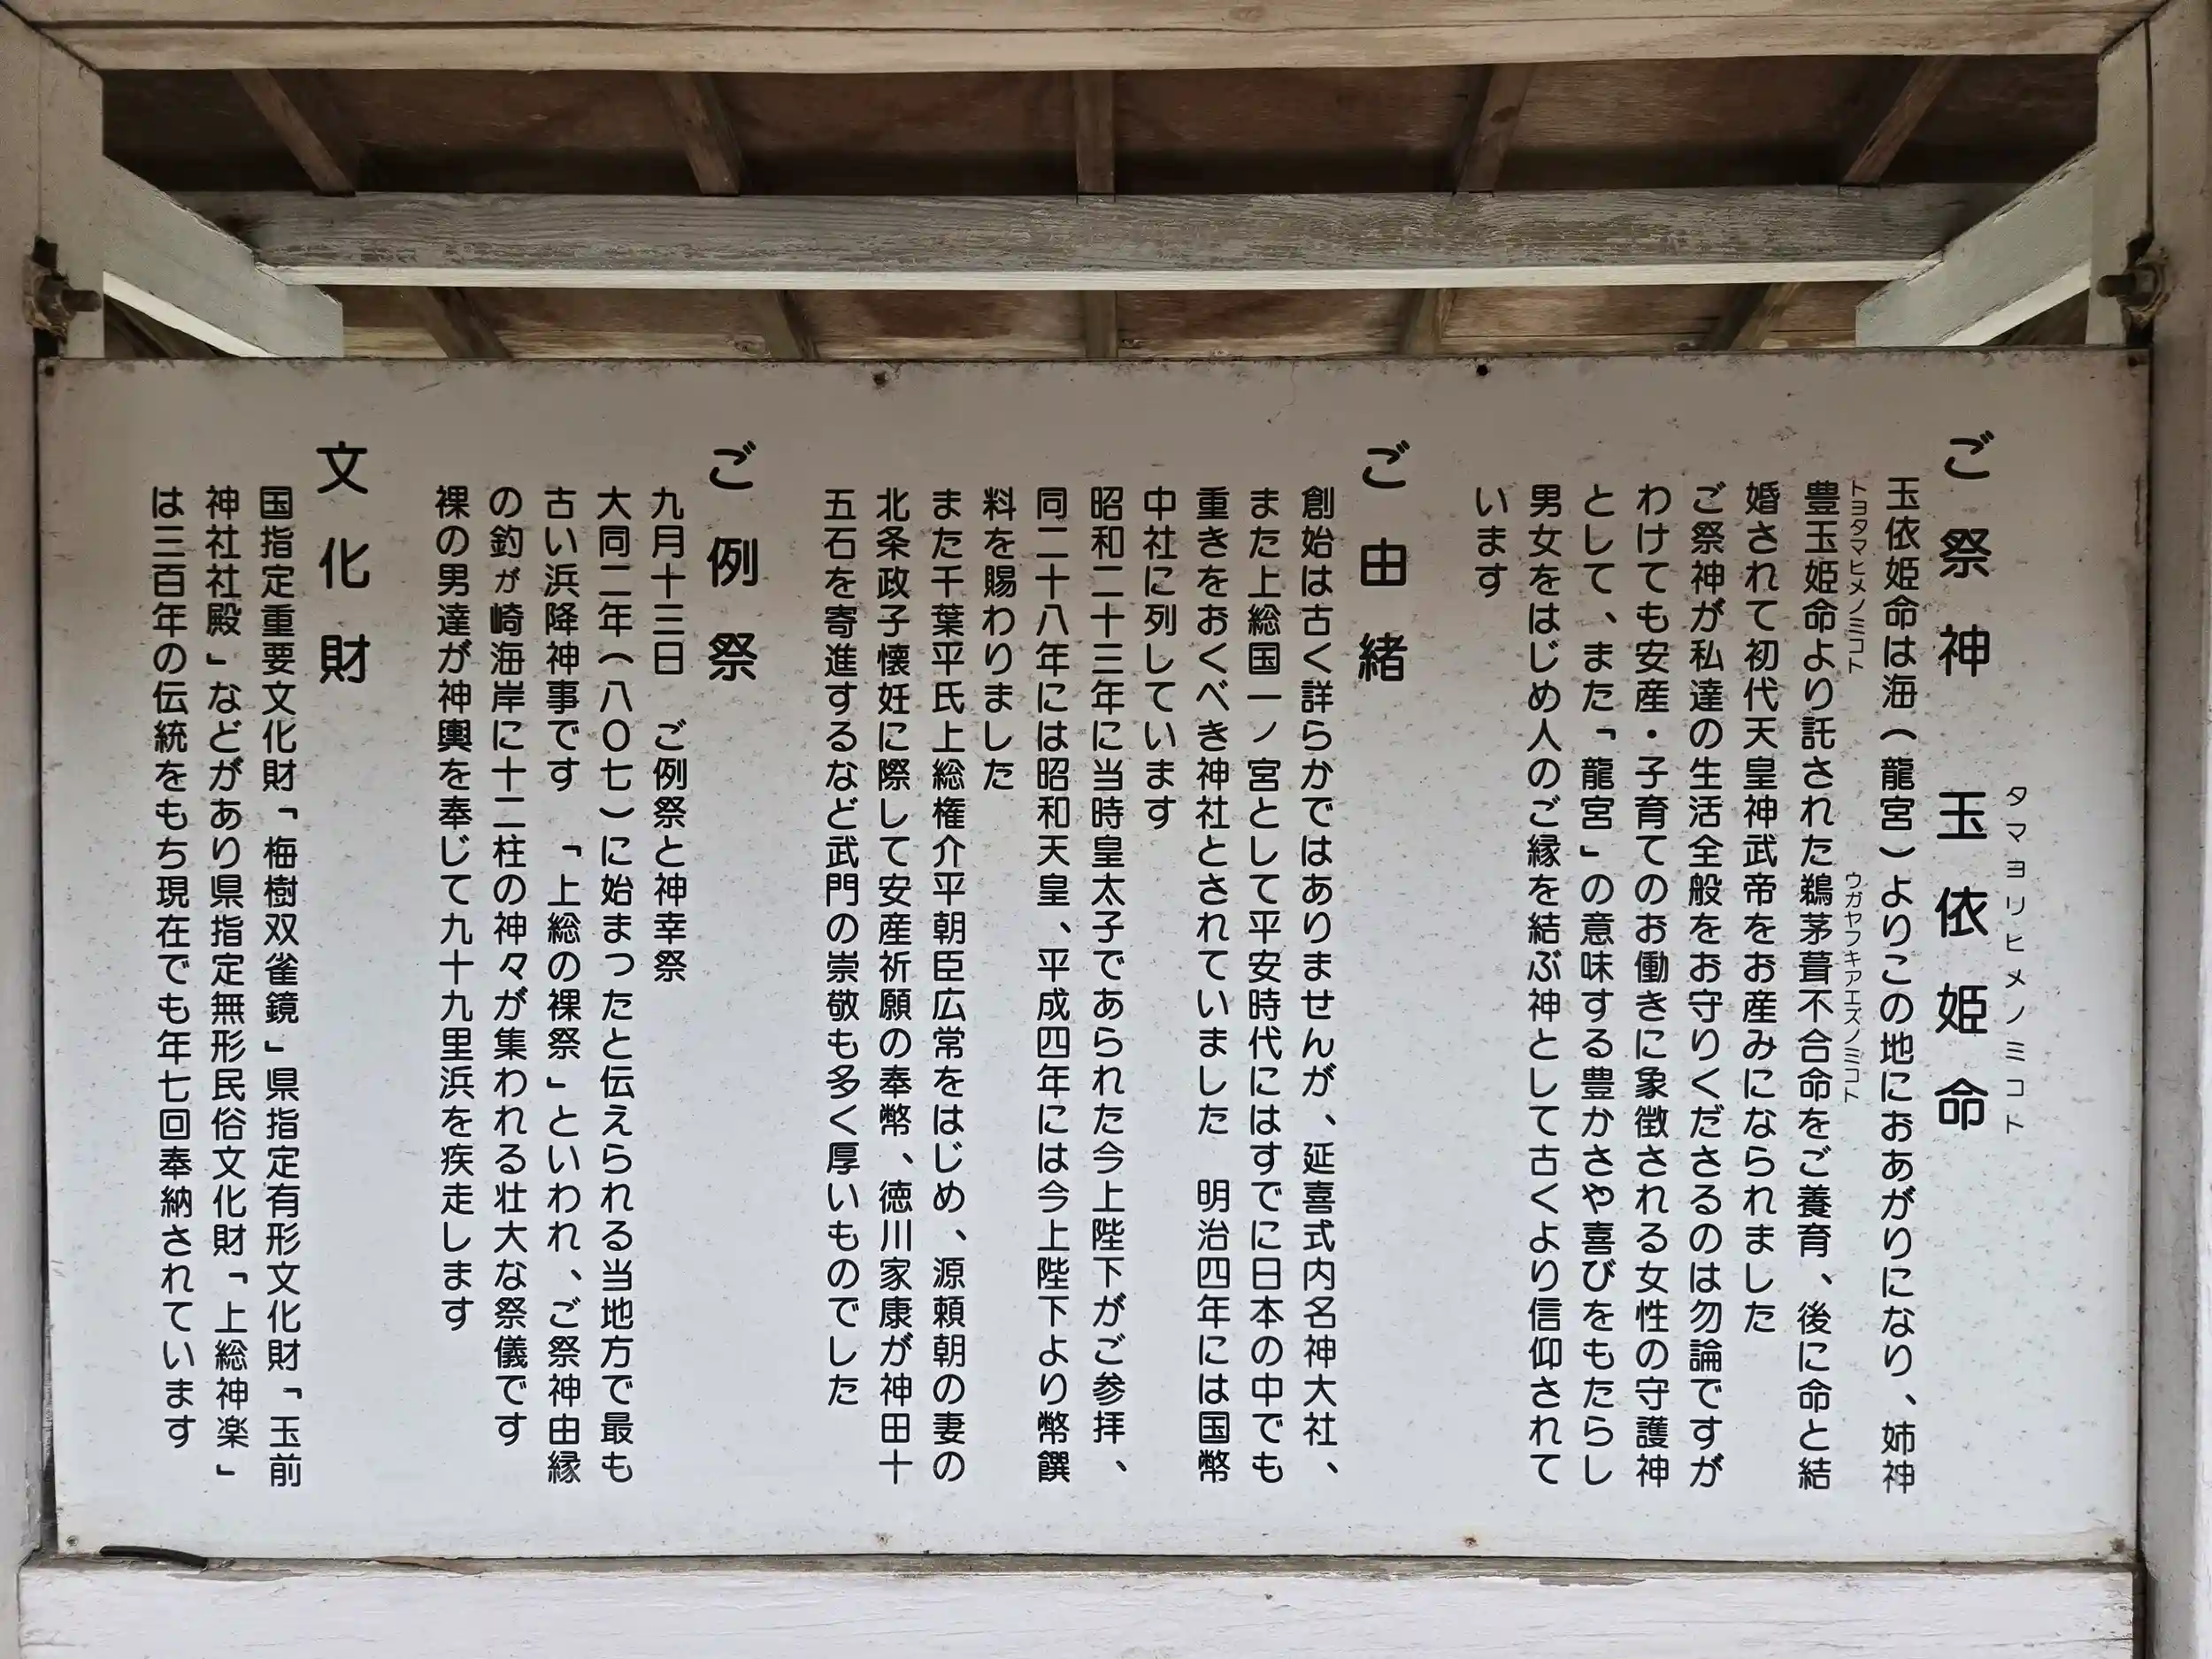 ご祭神　玉依姫命
タマヨリヒメノミコト
玉依姫命は海（龍宮）よりこの地におあがりになり、姉神
トヨタマヒメノミコト
ウガヤフキアエズノミコト
豊玉姫命より託された鵜茅葺不合命をご養育、後に命と結
婚されて初代天皇神武帝をお産みになられました
ご祭神が私達の生活全般をお守りくださるのは勿論ですが
わけても安産・子育てのお働きに象徴される女性の守護神
として、また「龍宮」の意味する豊かさや喜びをもたらし
男女をはじめ人のご縁を結ぶ神として古くより信仰されて
います
ご由緒
創始は古く詳らかではありませんが、延喜式内名神大社、
また上総国一ノ宮として平安時代にはすでに日本の中でも
重きをおくべき神社とされていました　明治四年には国幣
中社に列しています
昭和二十三年に当時皇太子であられた今上陛下がご参拝、
同二十八年には昭和天皇、平成四年には今上陛下より幣饌
料を賜わりました
また千葉平氏上総権介平朝臣広常をはじめ、源頼朝の妻の
北条政子懐妊に際して安産祈願の奉幣、徳川家康が神田十
五石を寄進するなど武門の崇敬も多く厚いものでした
ご例祭
九月十三日　ご例祭と神幸祭
大同二年（八〇七）に始まつたと伝えられる当地方で最も
古い浜降神事です　「上総の裸祭」といわれ、ご祭神由縁
の釣が崎海岸に十二柱の神々が集われる壮大な祭儀です
裸の男達が神輿を奉じて九十九里浜を疾走します
文化財
国指定重要文化財「梅樹双雀鏡」県指定有形文化財「玉前
神社社殿」などがあり県指定無形民俗文化財「上総神楽」
は三百年の伝統をもち現在でも年七回奉納されています